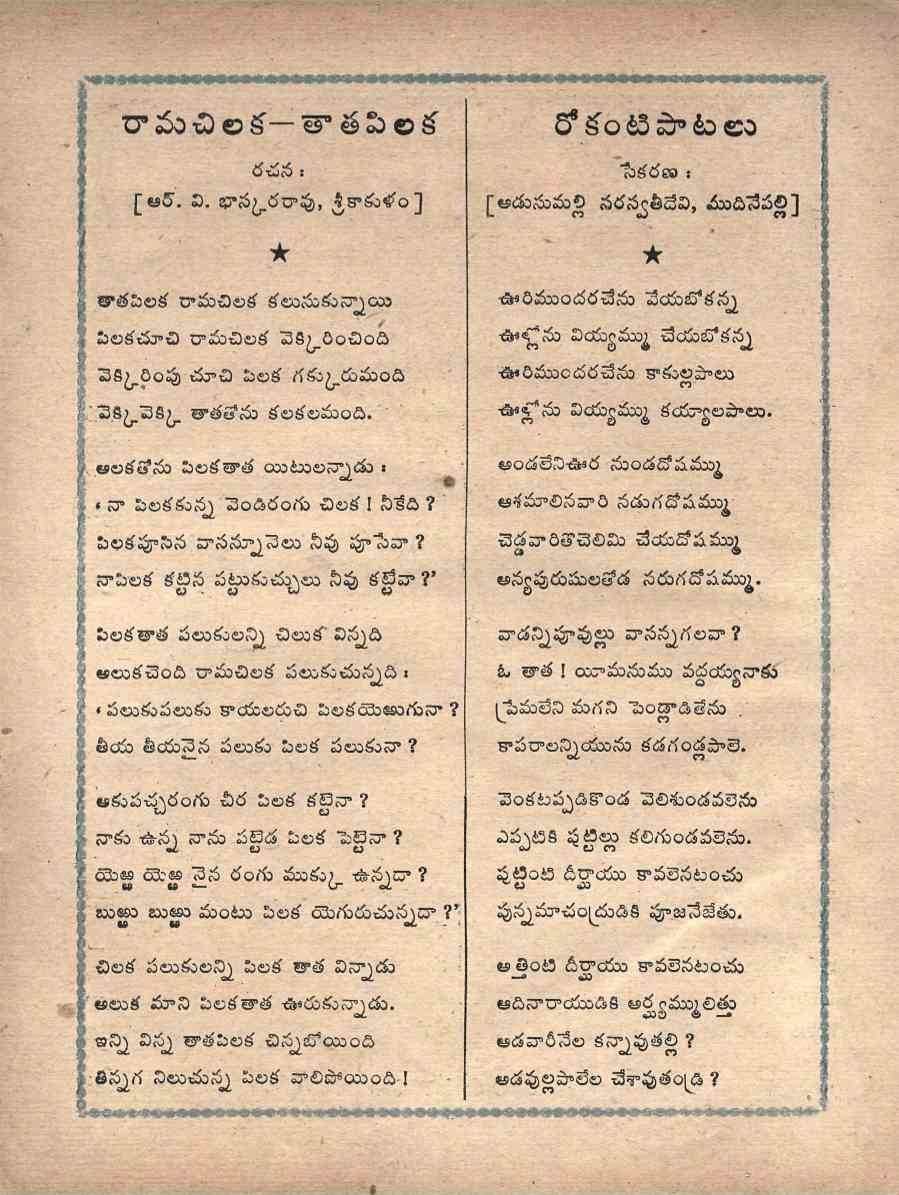 రామచిలక — తాతపిలక
రచన :
[ ఆర్. వి. భాస్కరరావు, శ్రీకాకుళం ]
★
తాతపిలక రామచిలక కలుసుకున్నాయి
పిలకచూచి రామచిలక వెక్కిరించింది
వెక్కిరింపు చూచి పిలక గక్కురుమంది
వెక్కివెక్కి తాతతోను కలకలమంది.
అలకతోను పిలకతాత యిటులన్నాడు :
‘ నా పిలకకున్న వెండిరంగు చిలక ! నీకేది ?
పిలకపూసిన వాసన్నూనెలు నీవు పూసేవా ?
నాపిలక కట్టిన పట్టుకుచ్చులు నీవు కట్టేవా ?’
పిలకతాత పలుకులన్ని చిలుక విన్నది
అలుకచెంది రామచిలక పలుకుచున్నది :
‘ పలుకుపలుకు కాయలరుచి పిలకయెఱుగునా ?
తీయ తీయనైన పలుకు పిలక పలుకునా ?
ఆకుపచ్చరంగు చీర పిలక కట్టెనా ?
నాకు ఉన్న నాను పట్టెడ పిలక పెట్టెనా ?
యెఱ్ఱ యెఱ్ఱ నైన రంగు ముక్కు ఉన్నదా ?
బుఱ్ఱు బుఱ్ఱు మంటు పిలక యెగురుచున్నదా ?’
చిలక పలుకులన్ని పిలక తాత విన్నాడు
అలుక మాని పిలకతాత ఊరుకున్నాడు.
ఇన్ని విన్న తాతపిలక చిన్నబోయింది
తిన్నగ నిలుచున్న పిలక వాలిపోయింది !
రోకంటిపాటలు
సేకరణ :
[ఆడుసుమల్లి సరస్వతీదేవి, ముదినేపల్లి]
★
ఊరిముందరచేను వేయబోకన్న
ఊళ్లోను వియ్యమ్ము చేయబోకన్న
ఊరిముందరచేను కాకుల్లపాలు
ఊళ్లోను వియ్యమ్ము కయ్యాలపాలు.
అండలేనిఊర నుండదోషమ్ము
ఆశమాలినవారి నడుగదోషమ్ము
చెడ్డవారితొచెలిమి చేయదోషమ్ము
అన్యపురుషులతోడ సరుగదోషమ్ము.
వాడన్నిపూవుల్లు వాసన్నగలవా ?
ఓ తాత ! యీమనుము వద్దయ్యనాకు
ప్రేమలేని మగని పెండ్లాడితేను
కాపరాలన్నియును కడగండ్లపాలె.
వెంకటప్పడికొండ వెలిశుండవలెను
ఎప్పటికి పుట్టిల్లు కలిగుండవలెను.
పుట్టింటి దీర్ఘాయు కావలెనటంచు
పున్నమాచంద్రుడికి పూజనేజేతు.
అత్తింటి దీర్ఘాయు కావలెనటంచు
ఆదినారాయుడికి అర్ఘ్యమ్ములిత్తు
ఆడవారీనేల కన్నావుతల్లి ?
అడవుల్లపాలేల చేశావుతండ్రి ?